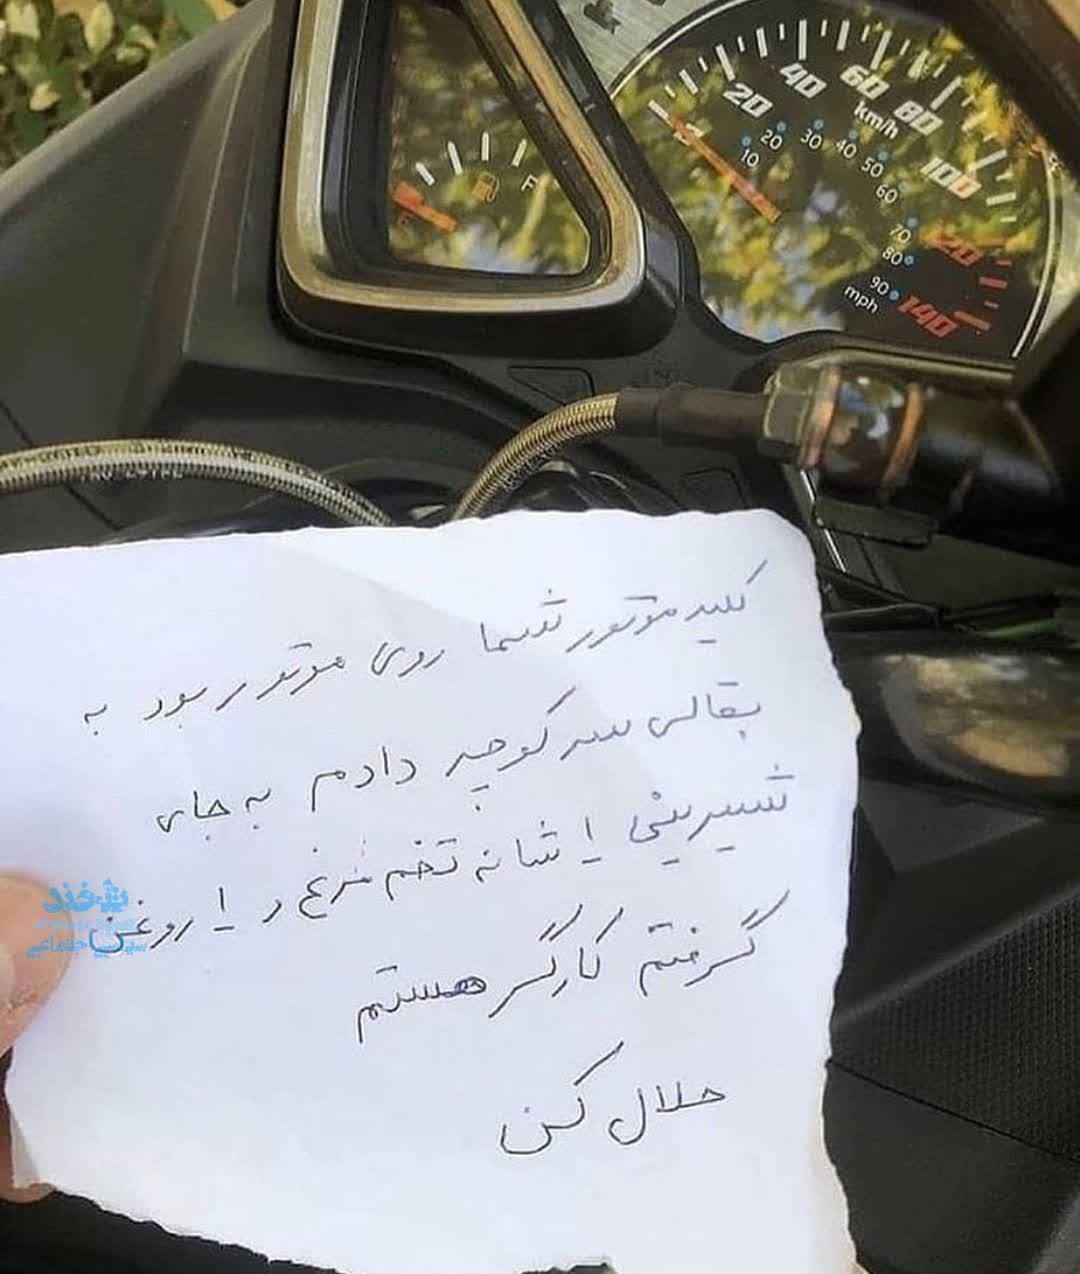 F
E
20
40
60
80
100
120
140
km/h
10
20
30
40
50
60
70
80
90
mph
کلید موتور شما روی موتور بود به
بقالی سر کوچه دادم به جای
شیرینی ۱ شانه تخم مرغ و ۱ روغن
گرفتم کارگر هستم
حلال کن
ترفند
سیاسی اجتماعی